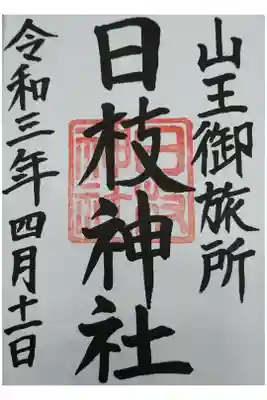 山王御旅所
日枝神社
令和三年四月十一日